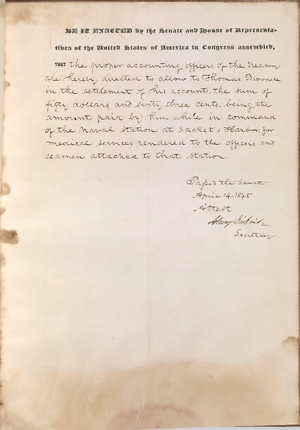 BE IT ENACTED by the Senate and House of Representa-
tives of the United States of America in Congress assembled,
THAT the proper accounting officers of the Treasury
are hereby directed to allow to Thomas
in the settlement of his accounts, the sum of
fifty dollars and sixty three cents, being the
amount paid by him while in command
of the Naval Station at Sacket's Harbor, for
medical services rendered to the officers and
seamen attached to that Station.
Passed the Senate
April 14, 1848
Attest
Secretary